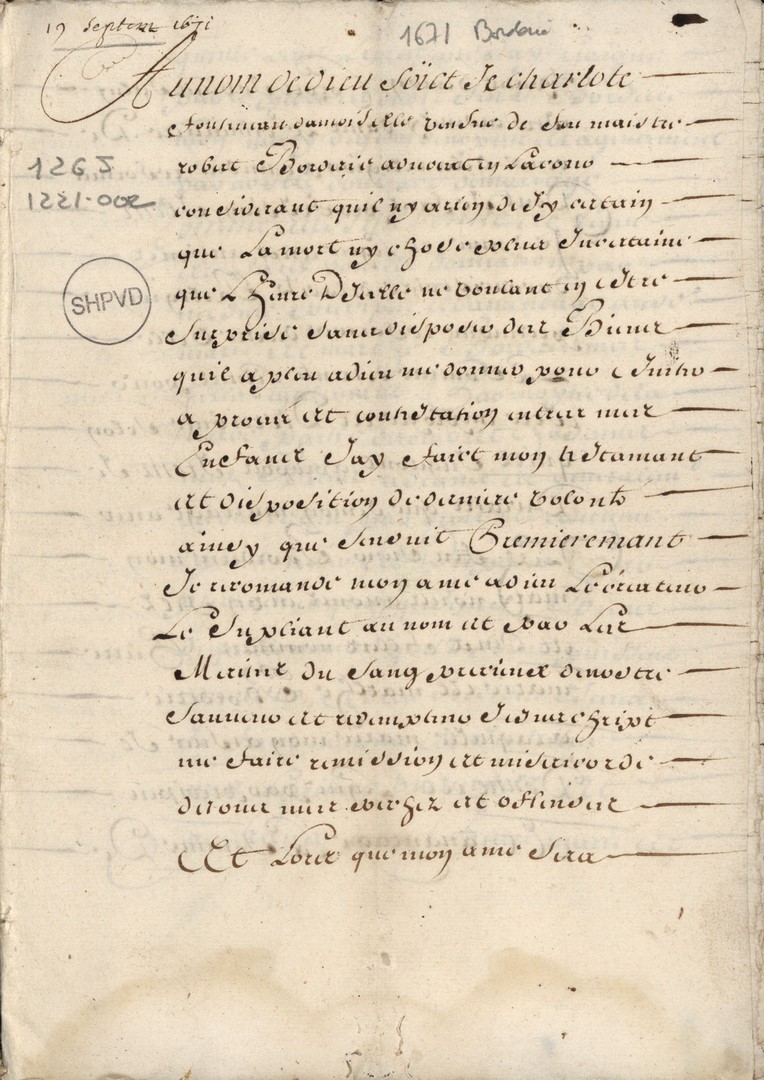 19 Septem 1671
1671 Borderie
Au nom de dieu soict Je charlote
damoiselle veufue de feu maistre
robert Borderie advocat en Lacour
considerant quil ny a rien de sy certain
que La mort ny chose plus Incertaine
que Lheure Dicelle ne voulant en estre
Surprise sans disposer des Biens
quil a pleu a dieu me donner pour esuiter
a proces et contestation entre mes
Enfans Jay faict mon testamant
et disposition de derniere volonte
ainsy que sensuit Premieremant
Je recomande mon ame a dieu Le createur
Le Supliant au nom et par Les
Merites du Sang pretieux de nostre
Sauueur et redempteur Jesus christ
me faire remission et misericorde
de tous mes pechez et offences
Et Lors que mon ame sera
126 J
1221-002
SHPVD